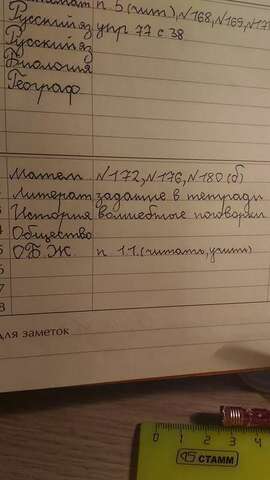 п 5 (чит), №168, №169, №17
Русский яз упр 77 с 38
Русский яз
Биология
Географ
Матем №172, №176, №180 (б)
Литерат задание в тетради
История волшебные поговорки
4 Общество
5 ОБЖ п 1.1. (читать, учить)
6
7
8
для заметок
0 1 2 3 4
СТАММ